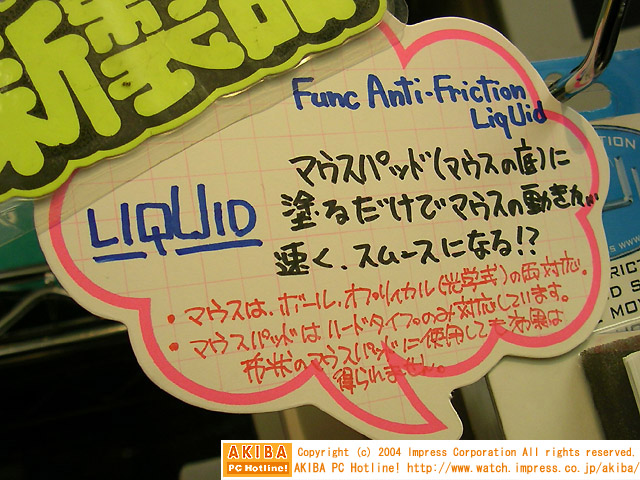 新製品
Func Anti-Friction
LiqUid
LIQUID
マウスパッド(マウスの底)に
塗るだけでマウスの動きが
速く、スムースになる!?
・マウスは、ボール、オプティカル(光学式)の両対応。
・マウスパッドはハードタイプのみ対応しています。
布状のマウスパッドに使用しても効果は
得られません。
AKIBA
PC Hotline!
Copyright (c) 2004 Impress Corporation All rights reserved.
AKIBA PC Hotline! http://www.watch.impress.co.jp/akiba/